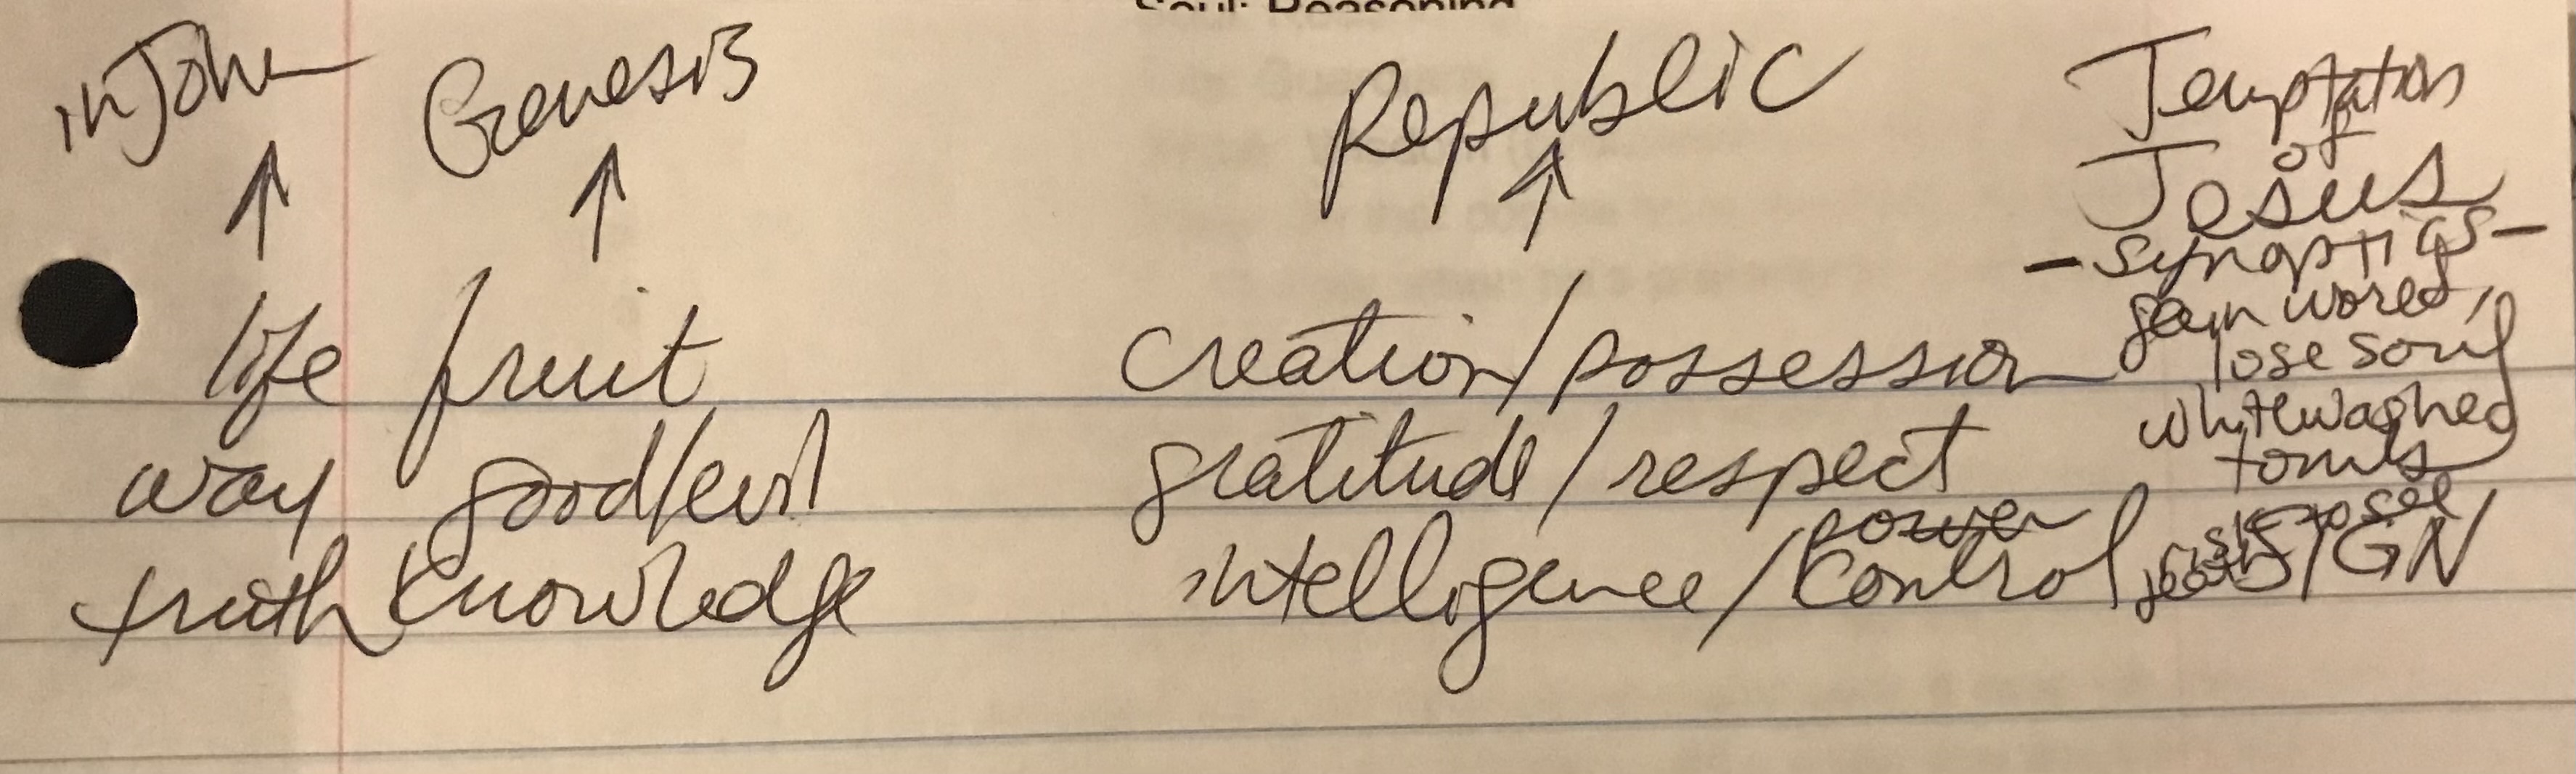 Soul: Reasoning
in John Genesis Republic Temptation
of
Jesus
- synoptics -
gain world,
lose soul
life fruit creation/possession
whitewashed
tombs
way good/evil gratitude/respect
power
truth knowledge intelligence/control SIGN